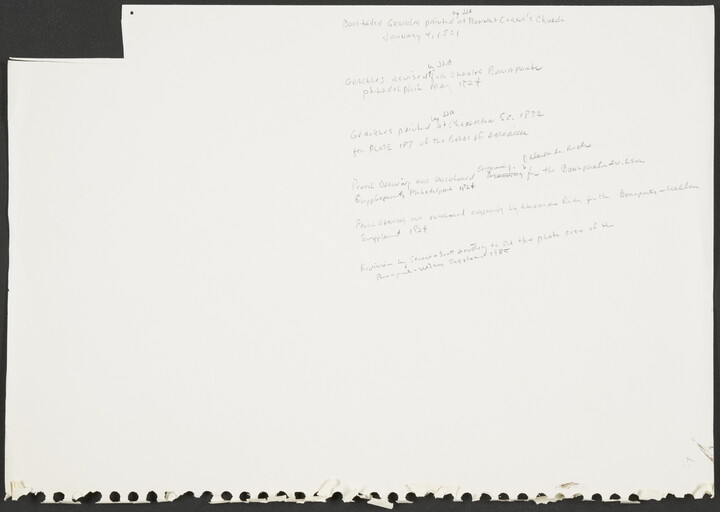 by JJA
Boat-tailed Grackles painted at Bonnet Carre's Church
January 4, 1821
by JJA
Grackles revised for Charles Bonaparte
Philadelphia May 1824
by JJA
Grackles painted at Charleston SC. 1832
for PLATE 187 of the BIRDS OF AMERICA
engraving
Pencil Drawing and unfinished for the Bonaparte-Wilson
Supplement, Philadelphia 1824
Pencil drawing and unfinished engraving by Alexander Rider for the Bonaparte-Wilson
Supplement 1824
Revision by to fit the plate size of the
Bonaparte-Wilson Supplement 1985